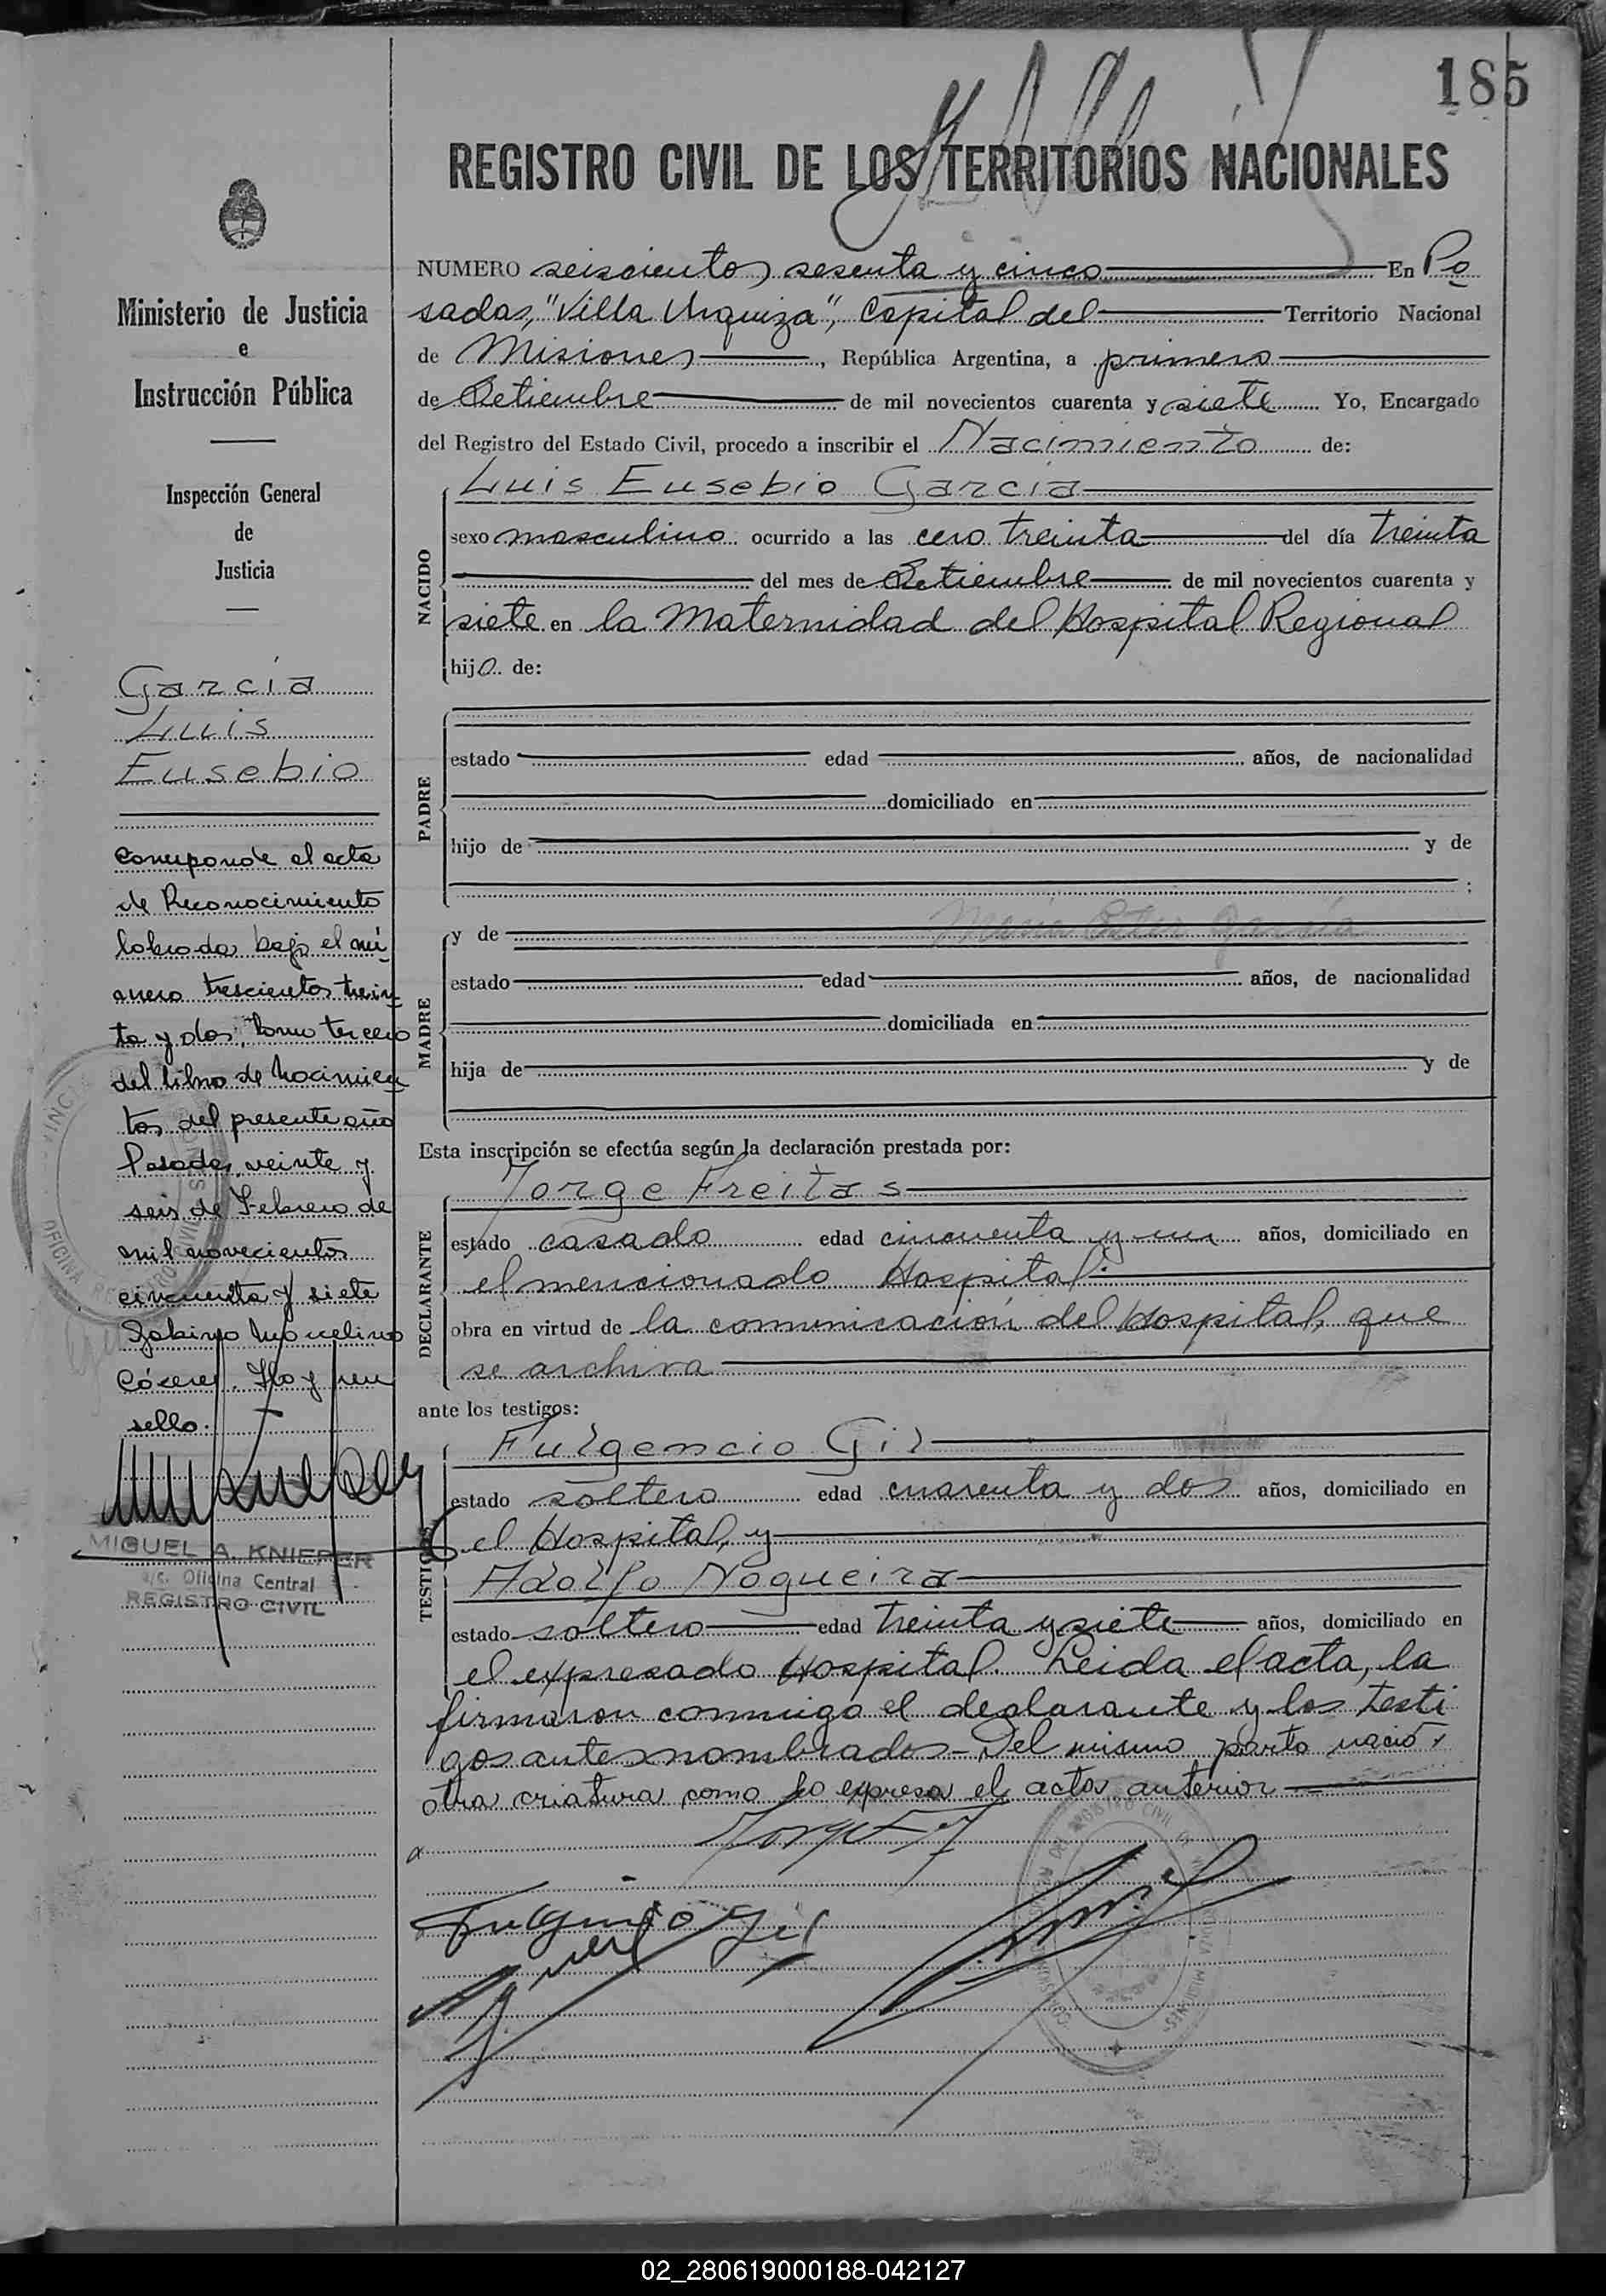 185
REGISTRO CIVIL DE LOS TERRITORIOS NACIONALES
NUMERO seiscientos sesenta y cinco En Po
sadas, "Villa Urquiza", Capital del Territorio Nacional
de Misiones, República Argentina, a primero
de Setiembre de mil novecientos cuarenta y siete Yo, Encargado
del Registro del Estado Civil, procedo a inscribir el Nacimiento de:
NACIDO
Luis Eusebio García
sexo masculino ocurrido a las cero treinta del día treinta
del mes de Setiembre de mil novecientos cuarenta y
siete en la Maternidad del Hospital Regional
hijo de:
PADRE
estado edad años, de nacionalidad
domiciliado en
hijo de y de
;
MADRE
y de María Ester García
estado edad años, de nacionalidad
domiciliada en
hija de y de
Esta inscripción se efectúa según la declaración prestada por:
DECLARANTE
Jorge Freitas
estado casado edad cincuenta y un años, domiciliado en
el mencionado Hospital
obra en virtud de la comunicación del Hospital, que
se archiva
ante los testigos:
TESTIGOS
Fulgencio Gil
estado soltero edad cuarenta y dos años, domiciliado en
el Hospital, y
Adolfo Nogueira
estado soltero edad treinta y siete años, domiciliado en
el expresado Hospital. Leida el acta, la
firmaron conmigo el declarante y los testi
gos antes nombrados - Del mismo parto nació
otra criatura como lo expresa el acta anterior
Fulgencio Gil
Ministerio de Justicia
e
Instrucción Pública
Inspección General
de
Justicia
García
Luis
Eusebio
Corresponde el acta
de Reconocimiento
labrada bajo el nú
mero trescientos trein
ta y dos, tomo tercero
del libro de Nacimien
tos del presente año
Posadas, veinte y
seis de Febrero de
mil novecientos
cincuenta y siete
Gabino Marcelino
Cáceres. Hay un
sello.
MIGUEL A. KNIEPER
a/c. Oficina Central
REGISTRO CIVIL
02_280619000188-042127